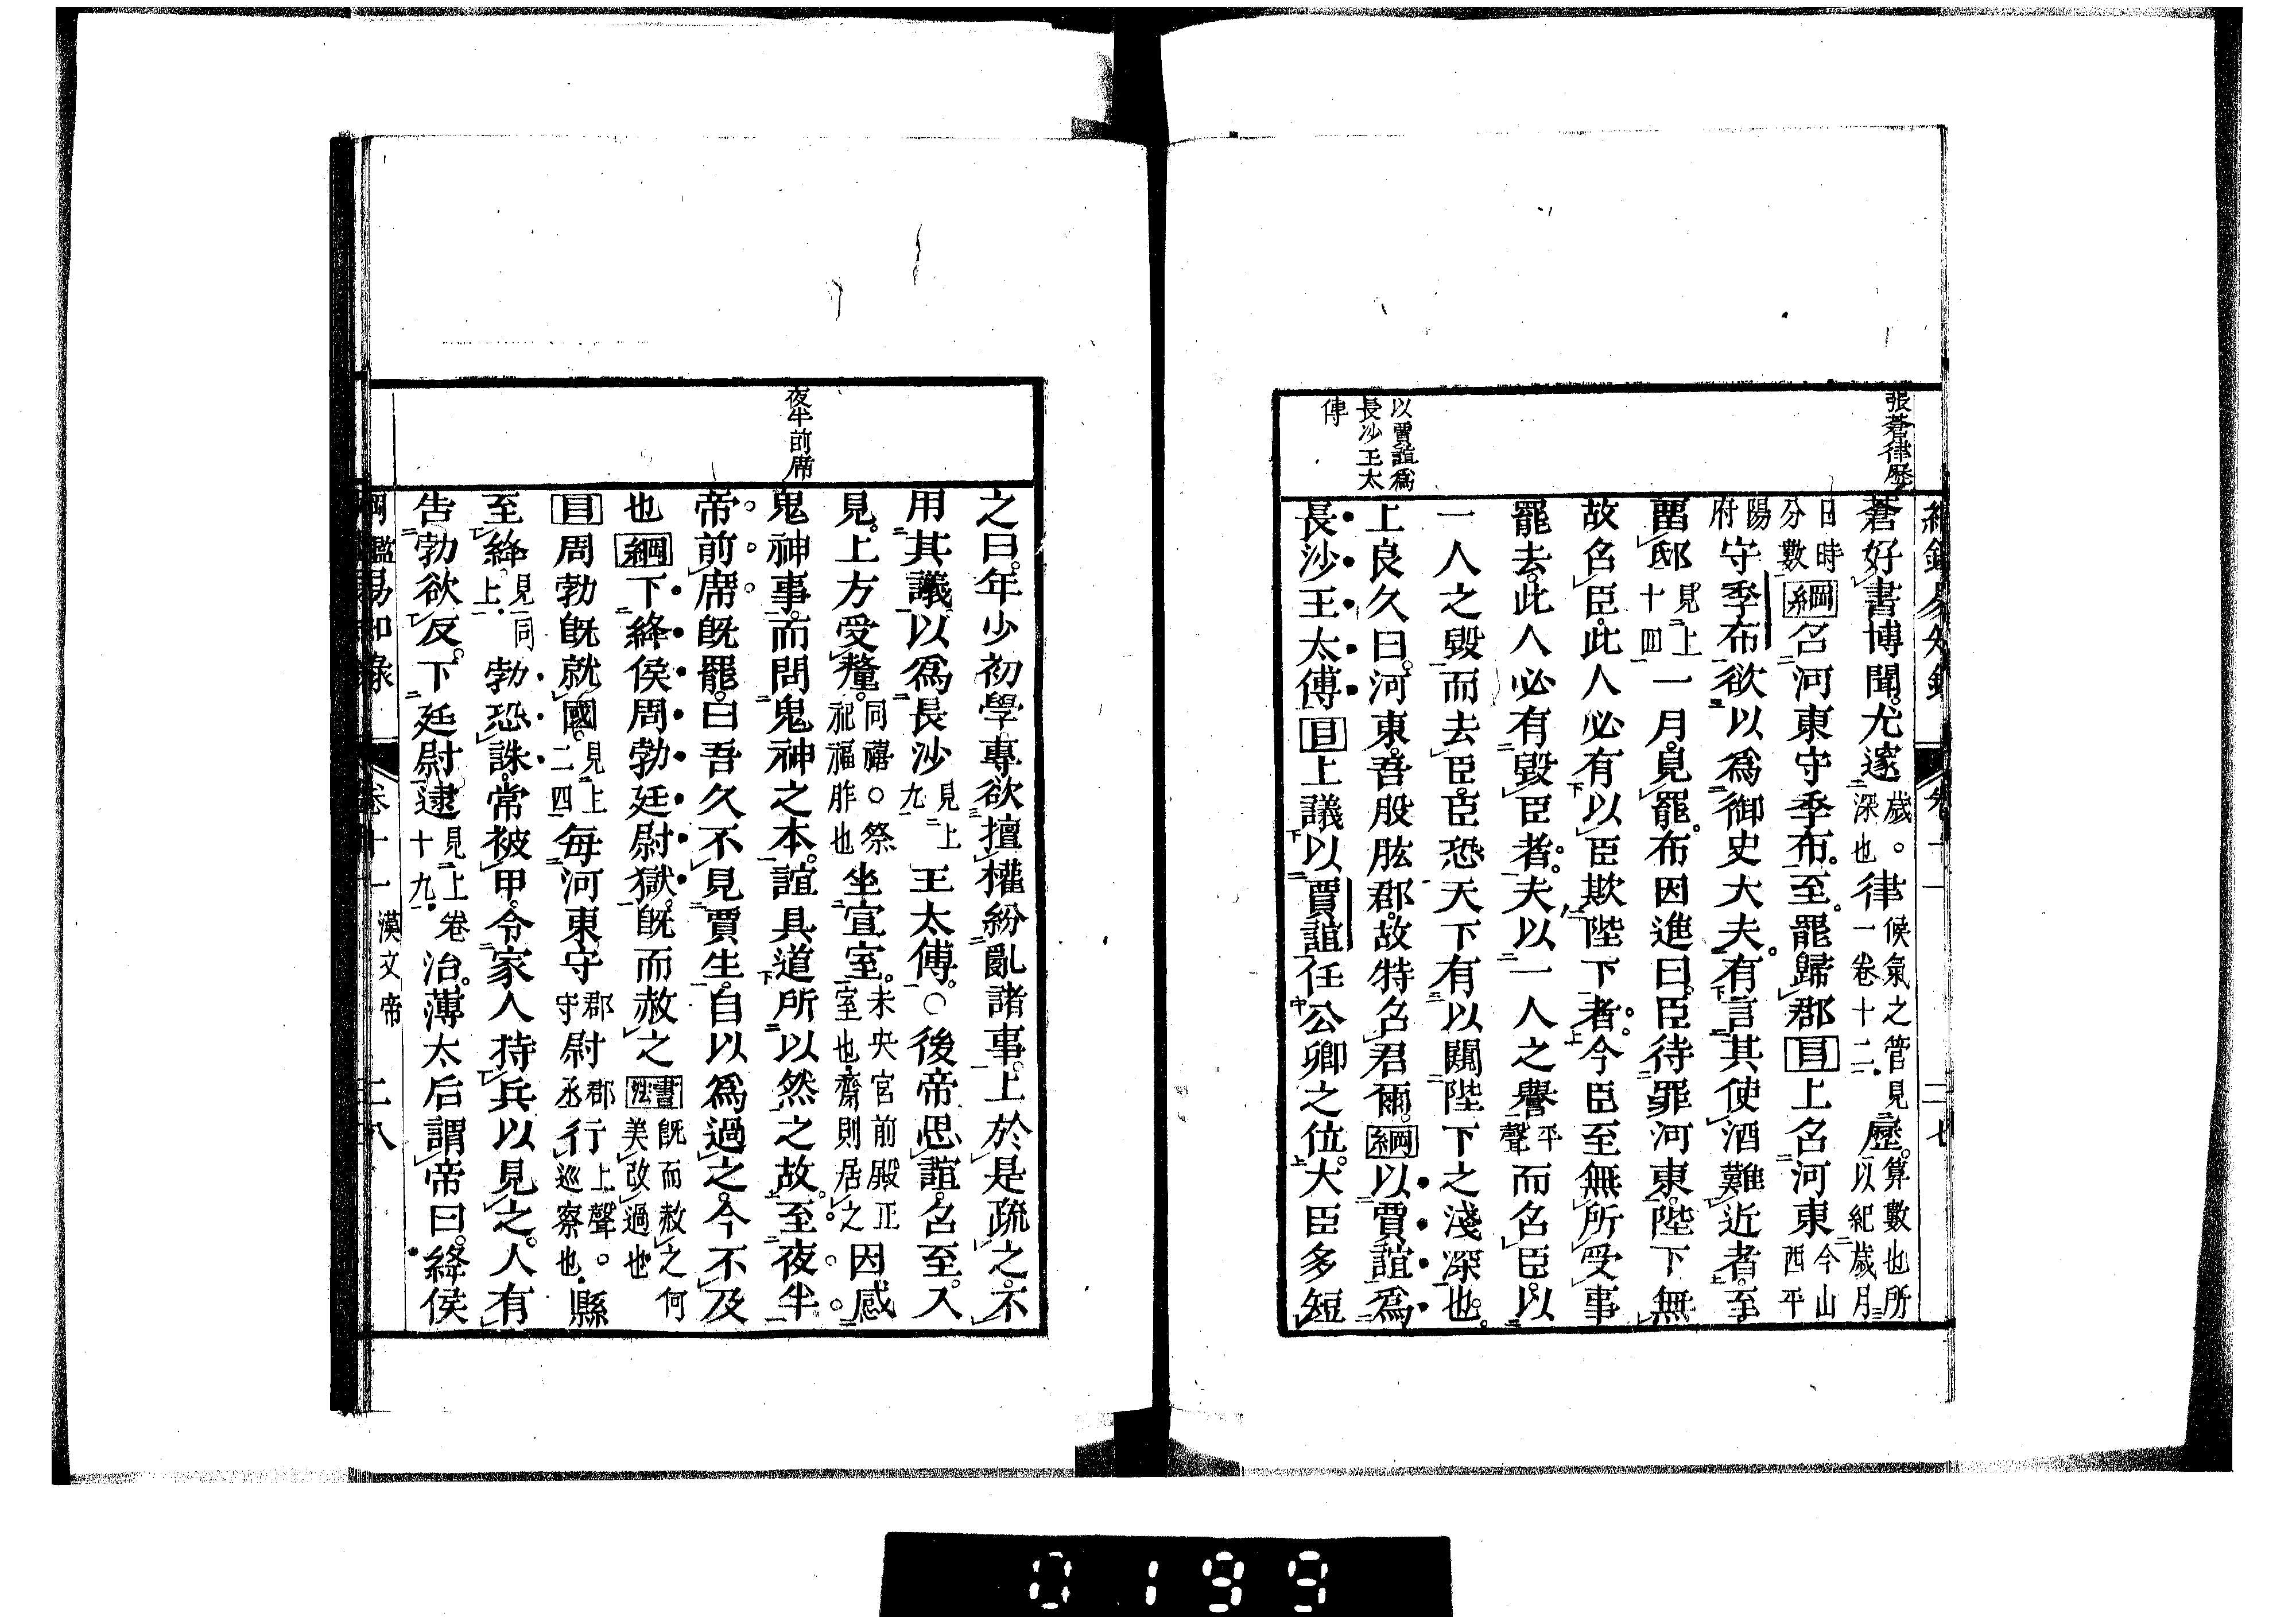 張蒼律歷
蒼好書博聞。尤邃歲。深也律候氣之管見一卷十二。歷。算數也所以紀歲月
日時分數綱召河東守季布。至。罷歸郡目上召河東今山西平
陽府守季布。欲以爲御史大夫。有言其使酒難近者。至
畱邸見上十四一月。見罷。布因進曰。臣待罪河東。陛下無
故召臣。此人必有以臣欺陛下者。今臣至無所受事
罷去。此人必有毀臣者。夫以一人之譽平聲而召臣。以
一人之毀而去臣。臣恐天下有以闚陛下之淺深也。
上良久曰。河東。吾股肱郡。故特召君爾。綱以賈誼爲
以賈誼爲
長沙王太
傅
長沙王太傅目上議以賈誼任公卿之位。大臣多短
之曰。年少初學專欲擅權紛亂諸事。上於是疏之。不
用其議以爲長沙見上九王太傅。○後帝思誼。召至。入
見。上方受釐。同禧○祭祀福胙也坐宣室。未央宮前殿正室也齋則居之因感
夜半前席
鬼神事。而問鬼神之本。誼具道所以然之故。至夜半
帝前席。旣罷。曰吾久不見賈生。自以爲過之。今不及
也綱下絳侯周勃廷尉獄。旣而赦之書法旣而赦之何美改過也
目周勃旣就國。見上二四每河東守郡守尉郡丞行上聲。巡察也縣
至絳。見同上勃恐誅。常被甲。令家人持兵以見之。人有
告勃欲反。下廷尉逮見上卷十九治。薄太后謂帝曰。絳侯
綱鑑易知錄 卷十一 漢文帝 二八